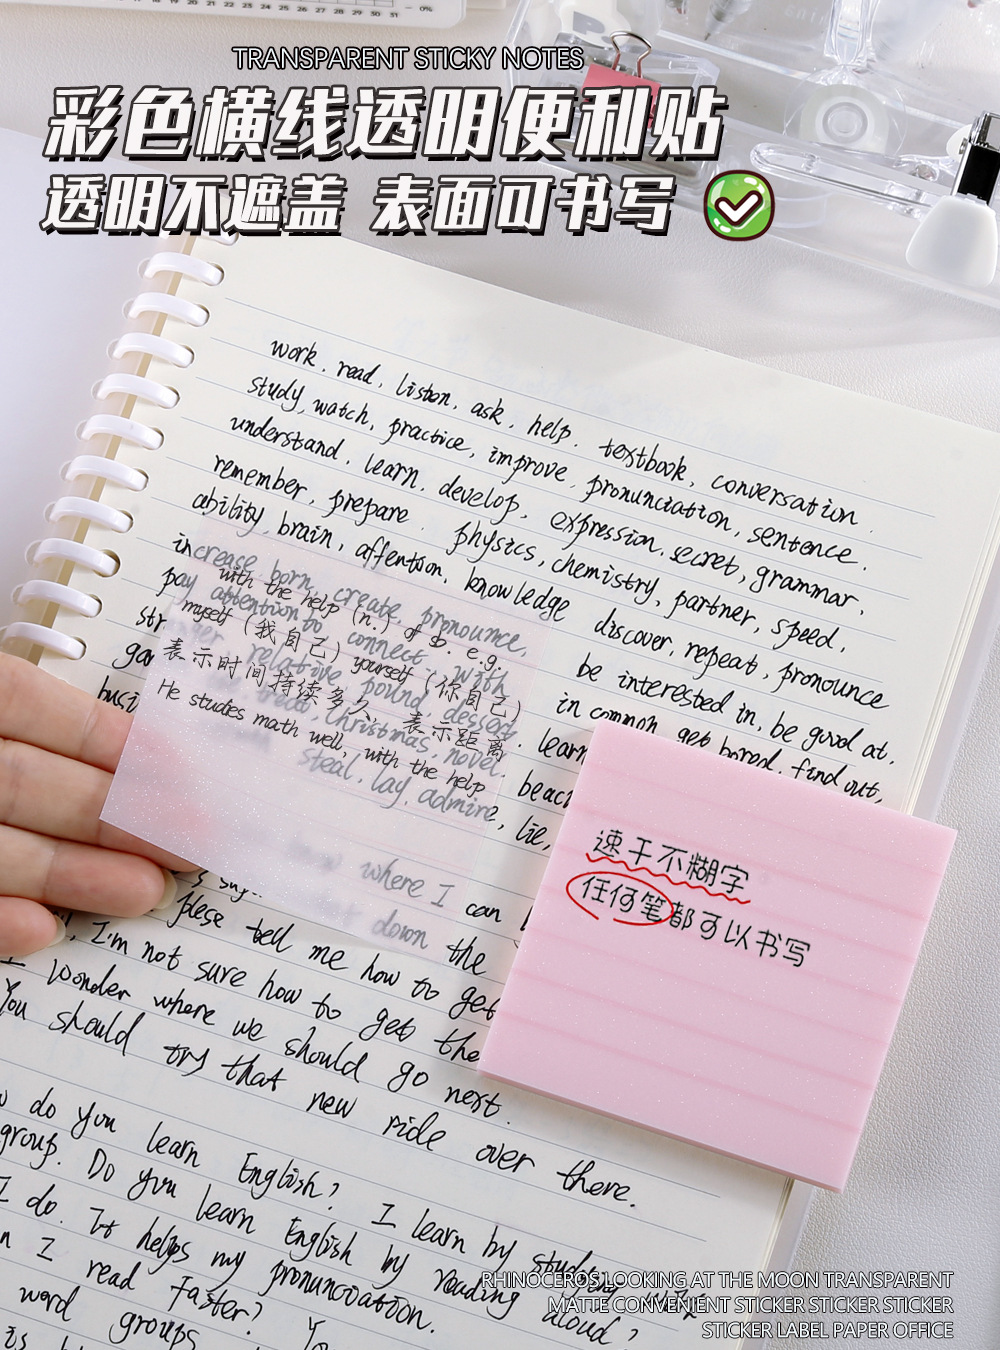 TRANSPARENT STICKY NOTES
彩色横线透明便利贴
透明不遮盖 表面可书写
work. read, liston, ask, help. textbook, conversation.
study, watch, practice, improve, pronunciation, sentence.
understand, learn, develop, expression, secret, grammar,
remember, prepare. physics, chemistry, partner, speed,
ability, brain, affention, knowledge discover, repeat, pronounce
increase, born, create, pronounce, be interested in, be good at,
pay attention to connect, with in common, get bored, find out,
relative, pound, dessert, learn
treat, Christmas, novel,
steal, lay, admire, lie,
with the help (n.) of sb. e.g.
myself (我自己) yourself (你自己)
表示时间持续多久 表示距离
He studies math well, with the help
速干不糊字
任何笔都可以书写
know where I can
down the
plese tell me how to get
I'm not sure how to get the
I Wonder where we should go next.
You should try that new ride over there.
do you learn English? I learn by studying
group. Do you learn English by reading aloud?
I do. It helps my pronunciation.
I read Faster?
word groups
RHINOCEROS LOOKING AT THE MOON TRANSPARENT
MATTE CONVENIENT STICKER STICKER STICKER
STICKER LABEL PAPER OFFICE